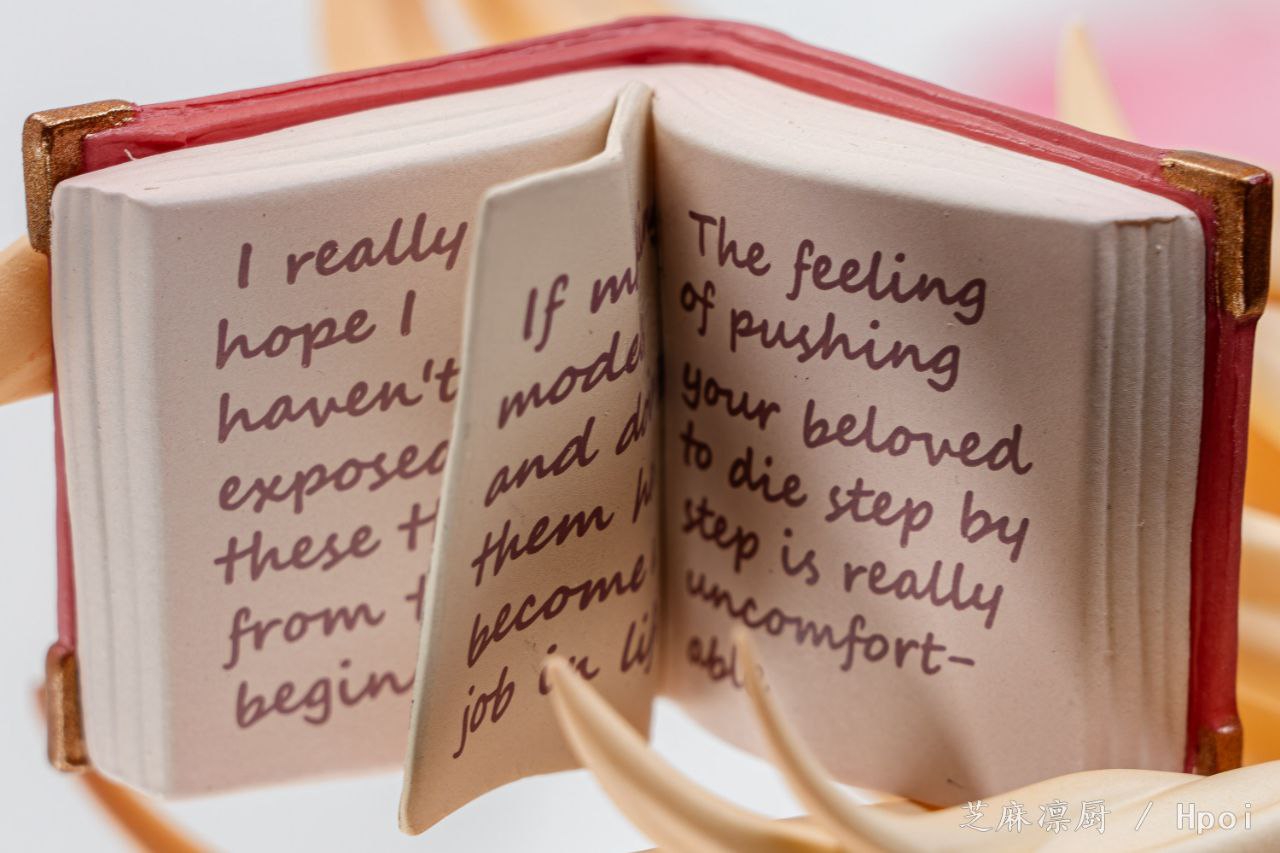 I really
hope I
haven't
exposed
these
from
begin
If
mode
and
them
become
job in
The feeling
of pushing
your beloved
to die step by
step is really
uncomfort-
芝麻凛厨 / Hpoi